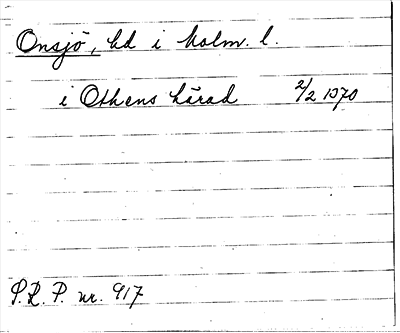 Onsjö, hd i Malm. l.
i Othens härad 2/2 1370
S.R.P. nr. 917